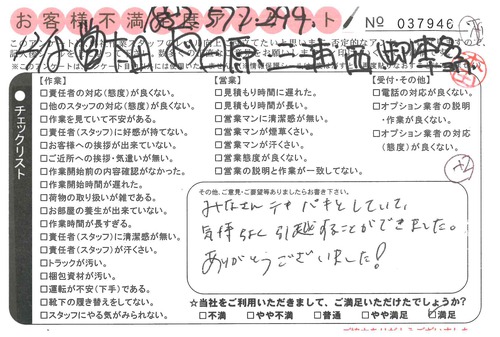 お客様不満
No 037946
【作業】
□責任者の対応(態度)が良くない。
□他のスタッフの対応(態度)が良くない。
□作業を見ていて不安がある。
□責任者(スタッフ)に好感が持てない。
□お客様への挨拶が出来ていない。
□ご近所への挨拶・気遣いが無い。
□作業開始前の内容確認がなかった。
□作業開始時間が遅れた。
□荷物の取り扱いが雑である。
□お部屋の養生が出来ていない。
□作業時間が長すぎる。
□責任者(スタッフ)に清潔感が無い。
□責任者(スタッフ)が汗くさい。
□トラックが汚い。
□梱包資材が汚い。
□運転が不安(下手)である。
□靴下の履き替えをしてない。
□スタッフにやる気がみられない。
【営業】
□見積もり時間に遅れた。
□見積もり時間が長い。
□営業マンに清潔感が無い。
□営業マンが煙草くさい。
□営業マンが汗くさい。
□営業態度が良くない。
□営業の説明と作業が一致してない。
【受付・その他】
□電話の対応が良くない。
□オプション業者の説明
・作業が良くない。
□オプション業者の対応
(態度)が良くない。
チェックリスト
その他、ご意見・ご要望等ありましたらお書き下さい。
みなさん テキパキとしていて、
気持ちよく引越することができました。
ありがとうございました!
☆当社をご利用いただきまして、ご満足いただけたでしょうか?
□不満 □やや不満 □普通 □やや満足 □満足